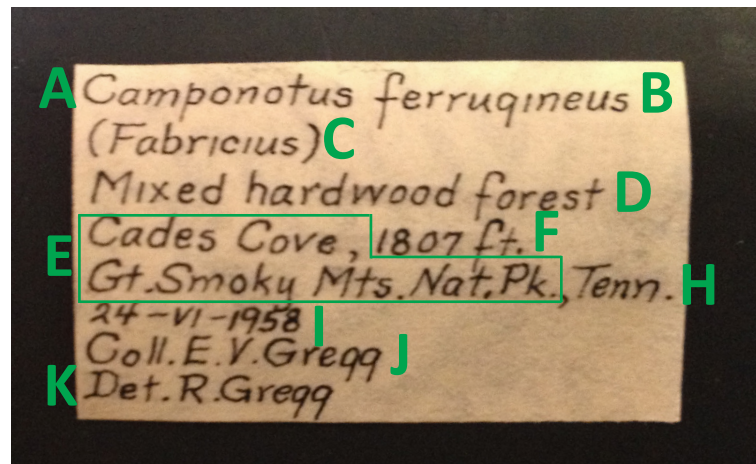 A Camponotus ferrugineus B
(Fabricius) C
Mixed hardwood forest D
E Cades Cove, 1807 ft. F
Gt. Smoky Mts. Nat. Pk., Tenn. H
24-VI-1958 I
Coll. E. V. Gregg J
K Det. R. Gregg